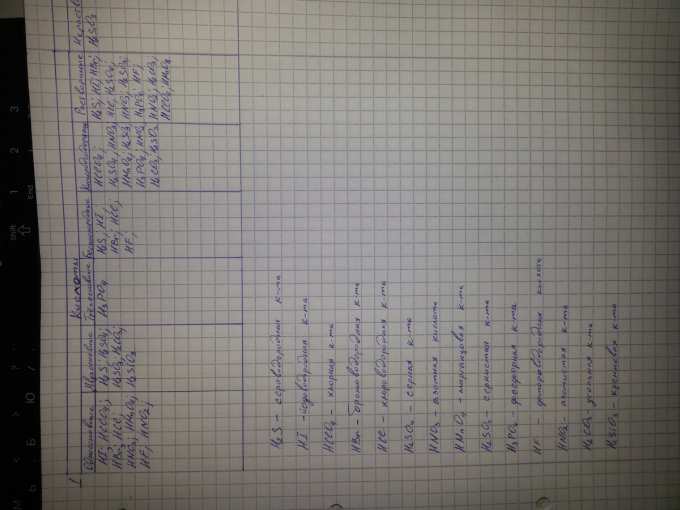 1
Кислоты
Одноосновные
HI; HClO4;
HBr; HCl;
HNO3; HMnO4;
HF; HNO2;
Двухосновные
H2S; H2SO4;
H2SO3; H2CO3;
H2SiO3
Трехосновные
H3PO4
Бескислородные
H2S; HI;
HBr; HCl;
HF;
Кислородсодержащие
HClO4;
H2SO4; HNO3;
HMnO4; H2SO3
H3PO4; HNO2
H2CO3; H2SiO3
Растворимые
H2S; HI; HBr;
HCl; H2SO4;
HNO3; H2SO3;
H3PO4; HF;
HNO2; H2CO3;
HClO4; HMnO4
H2SiO3
H2S – сероводородная к-та
HI – иодоводородная к-та
HClO4 – хлорная к-та
HBr – бромоводородная к-та
HCl – хлороводородная к-та
H2SO4 – серная к-та
HNO3 – азотная кислота
HMnO4 – марганцовая к-та
H2SO3 – сернистая к-та
H3PO4 – фосфорная к-та
HF – фтороводородная кислота
HNO2 – азотистая к-та
H2CO3 угольная к-та
H2SiO3 – кремниевая к-та